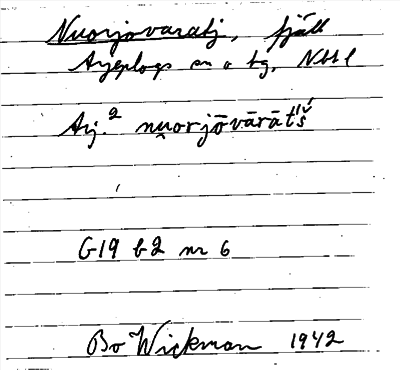 Nuorjovaratj, fjäll
Arjeplogs sn o tg, Nbtl
Arj.² nu̯orjōvārāt́š́
G19 b2 nr 6
Bo Wickman 1942